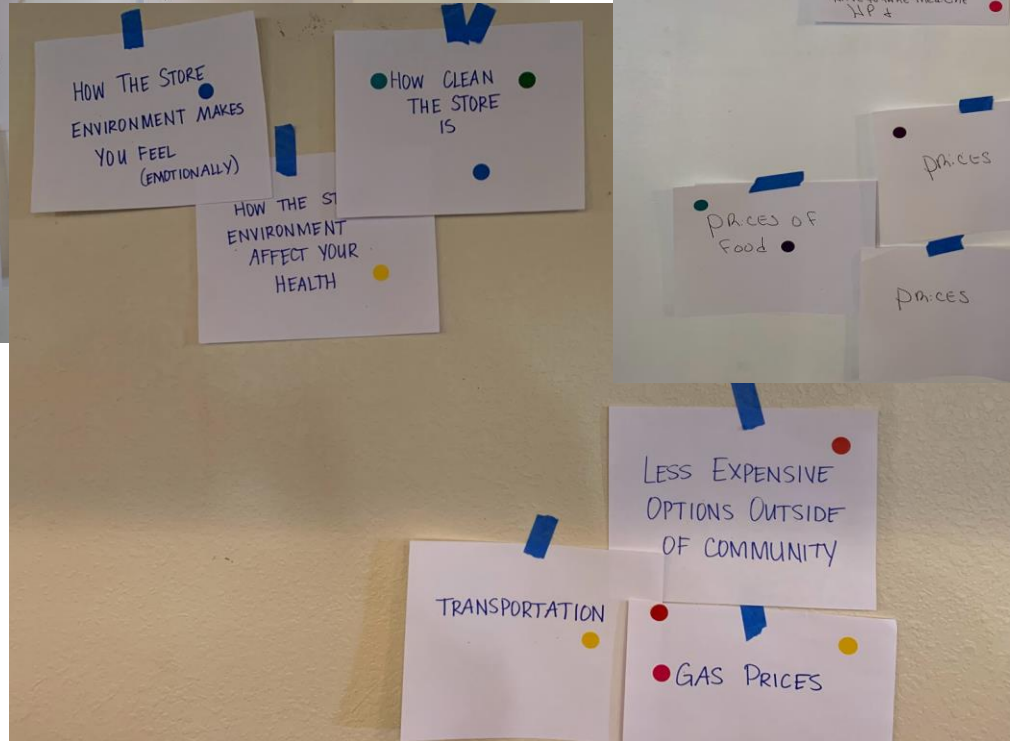 HOW THE STORE
ENVIRONMENT MAKES
YOU FEEL
(EMOTIONALLY)
HOW CLEAN
THE STORE
IS
HOW THE ST
ENVIRONMENT
AFFECT YOUR
HEALTH
HP &
prices
prices of
Food
prices
LESS EXPENSIVE
OPTIONS OUTSIDE
OF COMMUNITY
TRANSPORTATION
GAS PRICES